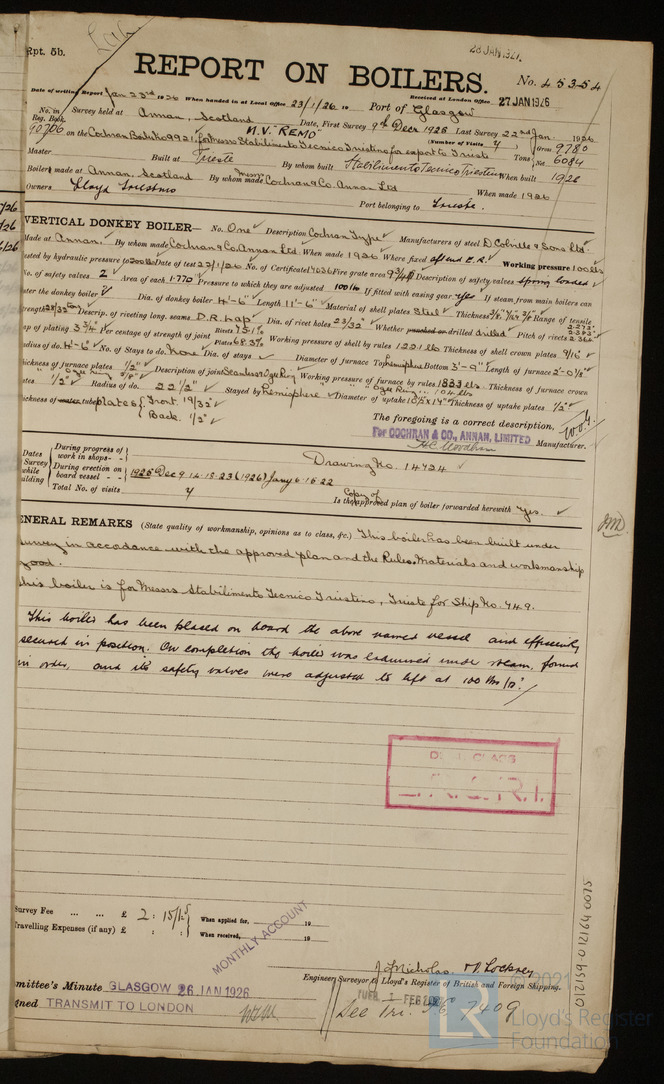 Rpt. 5b.
28 JAN.1927
REPORT ON BOILERS.
No. 45354
Date of writing Report Jan 23rd 1926 When handed in at Local Office 23/1/26 19 Received at London Office 27 JAN 1926
Port of Glasgow
No. in Survey held at Annan, Scotland Date, First Survey 9th Decr 1925 Last Survey 22nd Jan 1926
Reg. Book. (Number of Visits 7)
90706 on the Cochran Boiler No 9921, for Messrs Stabilimento Tecnico Triestino for export to Trieste
M.V. "REMO"
Tons Gross 9780
Net 6084
Master Built at Trieste By whom built Stabilimento Tecnico Triestino When built 1926
Boilers made at Annan, Scotland By whom made Messrs Cochran & Co. Annan Ltd When made 1926
Owners Lloyd Triestino Port belonging to Trieste.
VERTICAL DONKEY BOILER— No. One Description Cochran Type Manufacturers of steel D. Colville & Sons Ltd.
Made at Annan. By whom made Cochran & Co. Annan Ltd. When made 1926 Where fixed aft end E.R. Working pressure 100 lbs
ested by hydraulic pressure to 200 lbs Date of test 22/1/26 No. of Certificate Fire grate area Description of safety valves spring loaded
No. of safety valves 2 Area of each 1.770 Pressure to which they are adjusted 100 lb If fitted with easing gear yes If steam from main boilers can
ter the donkey boiler Dia. of donkey boiler 4'-6" Length 11'-6" Material of shell plates Steel Thickness Range of tensile
trength 28/32 tons Descrip. of riveting long. seams D.R. Lap Dia. of rivet holes 23/32" Whether punched or drilled drilled Pitch of rivets
ap of plating 3 3/4 Per centage of strength of joint Rivets 75.1% Plates 68.3% Working pressure of shell by rules 122 lbs Thickness of shell crown plates 9/16"
adius of do. 4'-6" No. of Stays to do. None Dia. of stays Diameter of furnace Top Hemisphere Bottom 3'-9" Length of furnace 2'-0 1/2"
hickness of furnace plates 1/2" Description of joint Seamless Ogee Ring Working pressure of furnace by rules 183 lbs Thickness of furnace crown
ates 1/2" Radius of do. 22 1/2" Stayed by Hemisphere Diameter of uptake 10 5/8 x 14" Thickness of uptake plates 1/2"
hickness of water tube plates Front. 19/32"
Back. 1/2"
The foregoing is a correct description,
For COCHRAN & CO., ANNAN, LIMITED Manufacturer.
Drawing No. 14724
Dates Survey while building
During progress of work in shops - -
During erection on board vessel - - -
1925 Dec 9.14.15.23 (1926) Jany 6.16.22
Total No. of visits 7
Is the Copy of approved plan of boiler forwarded herewith yes.
ENERAL REMARKS (State quality of workmanship, opinions as to class, &c.) This boiler has been built under
survey in accordance with the approved plan and the Rules. Materials and workmanship
good.
This boiler is for Messrs Stabilimento Tecnico Triestino, Trieste for Ship No. 749.
This boiler has been placed on board the above named vessel and efficiently
secured in position. On completion the boiler was examined under steam, found
in order, and its safety valves were adjusted to lift at 100 lbs/□".
L.R.C.R.I.
Survey Fee ... ... £ 2 : 15/- : When applied for, 19
Travelling Expenses (if any) £ : : When received, 19
MONTHLY ACCOUNT
J. Nicholas
Engineer Surveyor to Lloyd's Register of British and Foreign Shipping.
mmittee's Minute GLASGOW 26 JAN 1926
gned TRANSMIT TO LONDON
TUE. 1 FEB
See Tri. 7409
012159-012164-0075
© 2021
LR
Lloyd's Register
Foundation